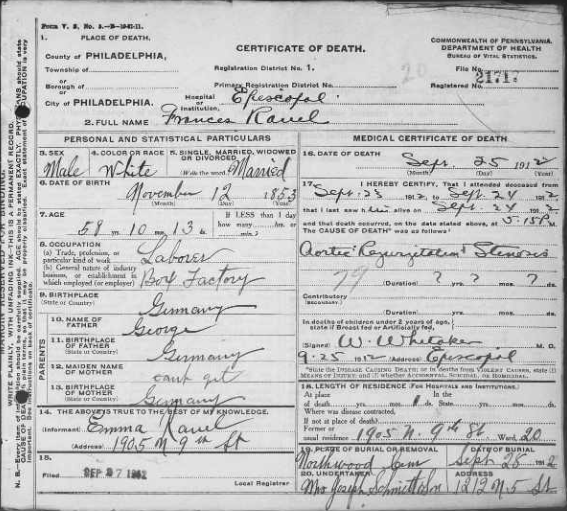 FORM V. S. No. 5.
1. PLACE OF DEATH.
County of PHILADELPHIA,
Township of
or
Borough of
or
City of PHILADELPHIA.
CERTIFICATE OF DEATH.
Registration District No. 1.
Primary Registration District No.
Hospital or Institution, Episcopal
COMMONWEALTH OF PENNSYLVANIA
DEPARTMENT OF HEALTH
BUREAU OF VITAL STATISTICS.
File No.
Registered No.
20
2. FULL NAME Frances Rauel
PERSONAL AND STATISTICAL PARTICULARS
3. SEX Male
4. COLOR OR RACE White
5. SINGLE, MARRIED, WIDOWED OR DIVORCED (Write the word) Married
6. DATE OF BIRTH November 12 1853
(Month) (Day) (Year)
7. AGE 58 yrs. 10 mos. 13 ds.
If LESS than 1 day how many hrs. or min.?
8. OCCUPATION
(a) Trade, profession, or particular kind of work Laborer
(b) General nature of industry business, or establishment in which employed (or employer) Box Factory
9. BIRTHPLACE (State or Country) Germany
PARENTS
10. NAME OF FATHER George
11. BIRTHPLACE OF FATHER (State or Country) Germany
12. MAIDEN NAME OF MOTHER cant get
13. BIRTHPLACE OF MOTHER (State or Country) Germany
14. THE ABOVE IS TRUE TO THE BEST OF MY KNOWLEDGE.
(Informant) Emma Rauel
(Address) 1905 N 9th St
15.
Filed SEP 27 1912
Local Registrar
MEDICAL CERTIFICATE OF DEATH
16. DATE OF DEATH Sept. 25 1912
(Month) (Day) (Year)
17. I HEREBY CERTIFY, That I attended deceased from
Sept. 23 1912 to Sept. 24 1912
that I last saw him alive on Sept. 24 1912
and that death occurred, on the date stated above, at 5.15 P M.
The CAUSE OF DEATH was as follows:
Aortic Regurgitation Stenosis
79
(Duration) ? yrs. ? mos. ? ds.
Contributory (Secondary)
(Duration) yrs. mos. ds.
In deaths of children under 2 years of age, state if Breast fed or Artificially fed,
(Signed) W. Whitaker M. D.
9-25 1912 (Address) Episcopal
State the DISEASE CAUSING DEATH; or, in deaths from VIOLENT CAUSES, state (1) MEANS OF INJURY; and (2) whether ACCIDENTAL, SUICIDAL, or HOMICIDAL.
18. LENGTH OF RESIDENCE (FOR HOSPITALS AND INSTITUTIONS).
At place of death yrs. mos. 1 ds. State yrs. mos. ds.
Where was disease contracted,
If not at place of death?
Former or usual residence 1905 N. 9th St. Ward, 20
19. PLACE OF BURIAL OR REMOVAL Northwood Cem
DATE OF BURIAL Sept. 28 1912
20. UNDERTAKER Mrs Joseph
1212 N 5 St